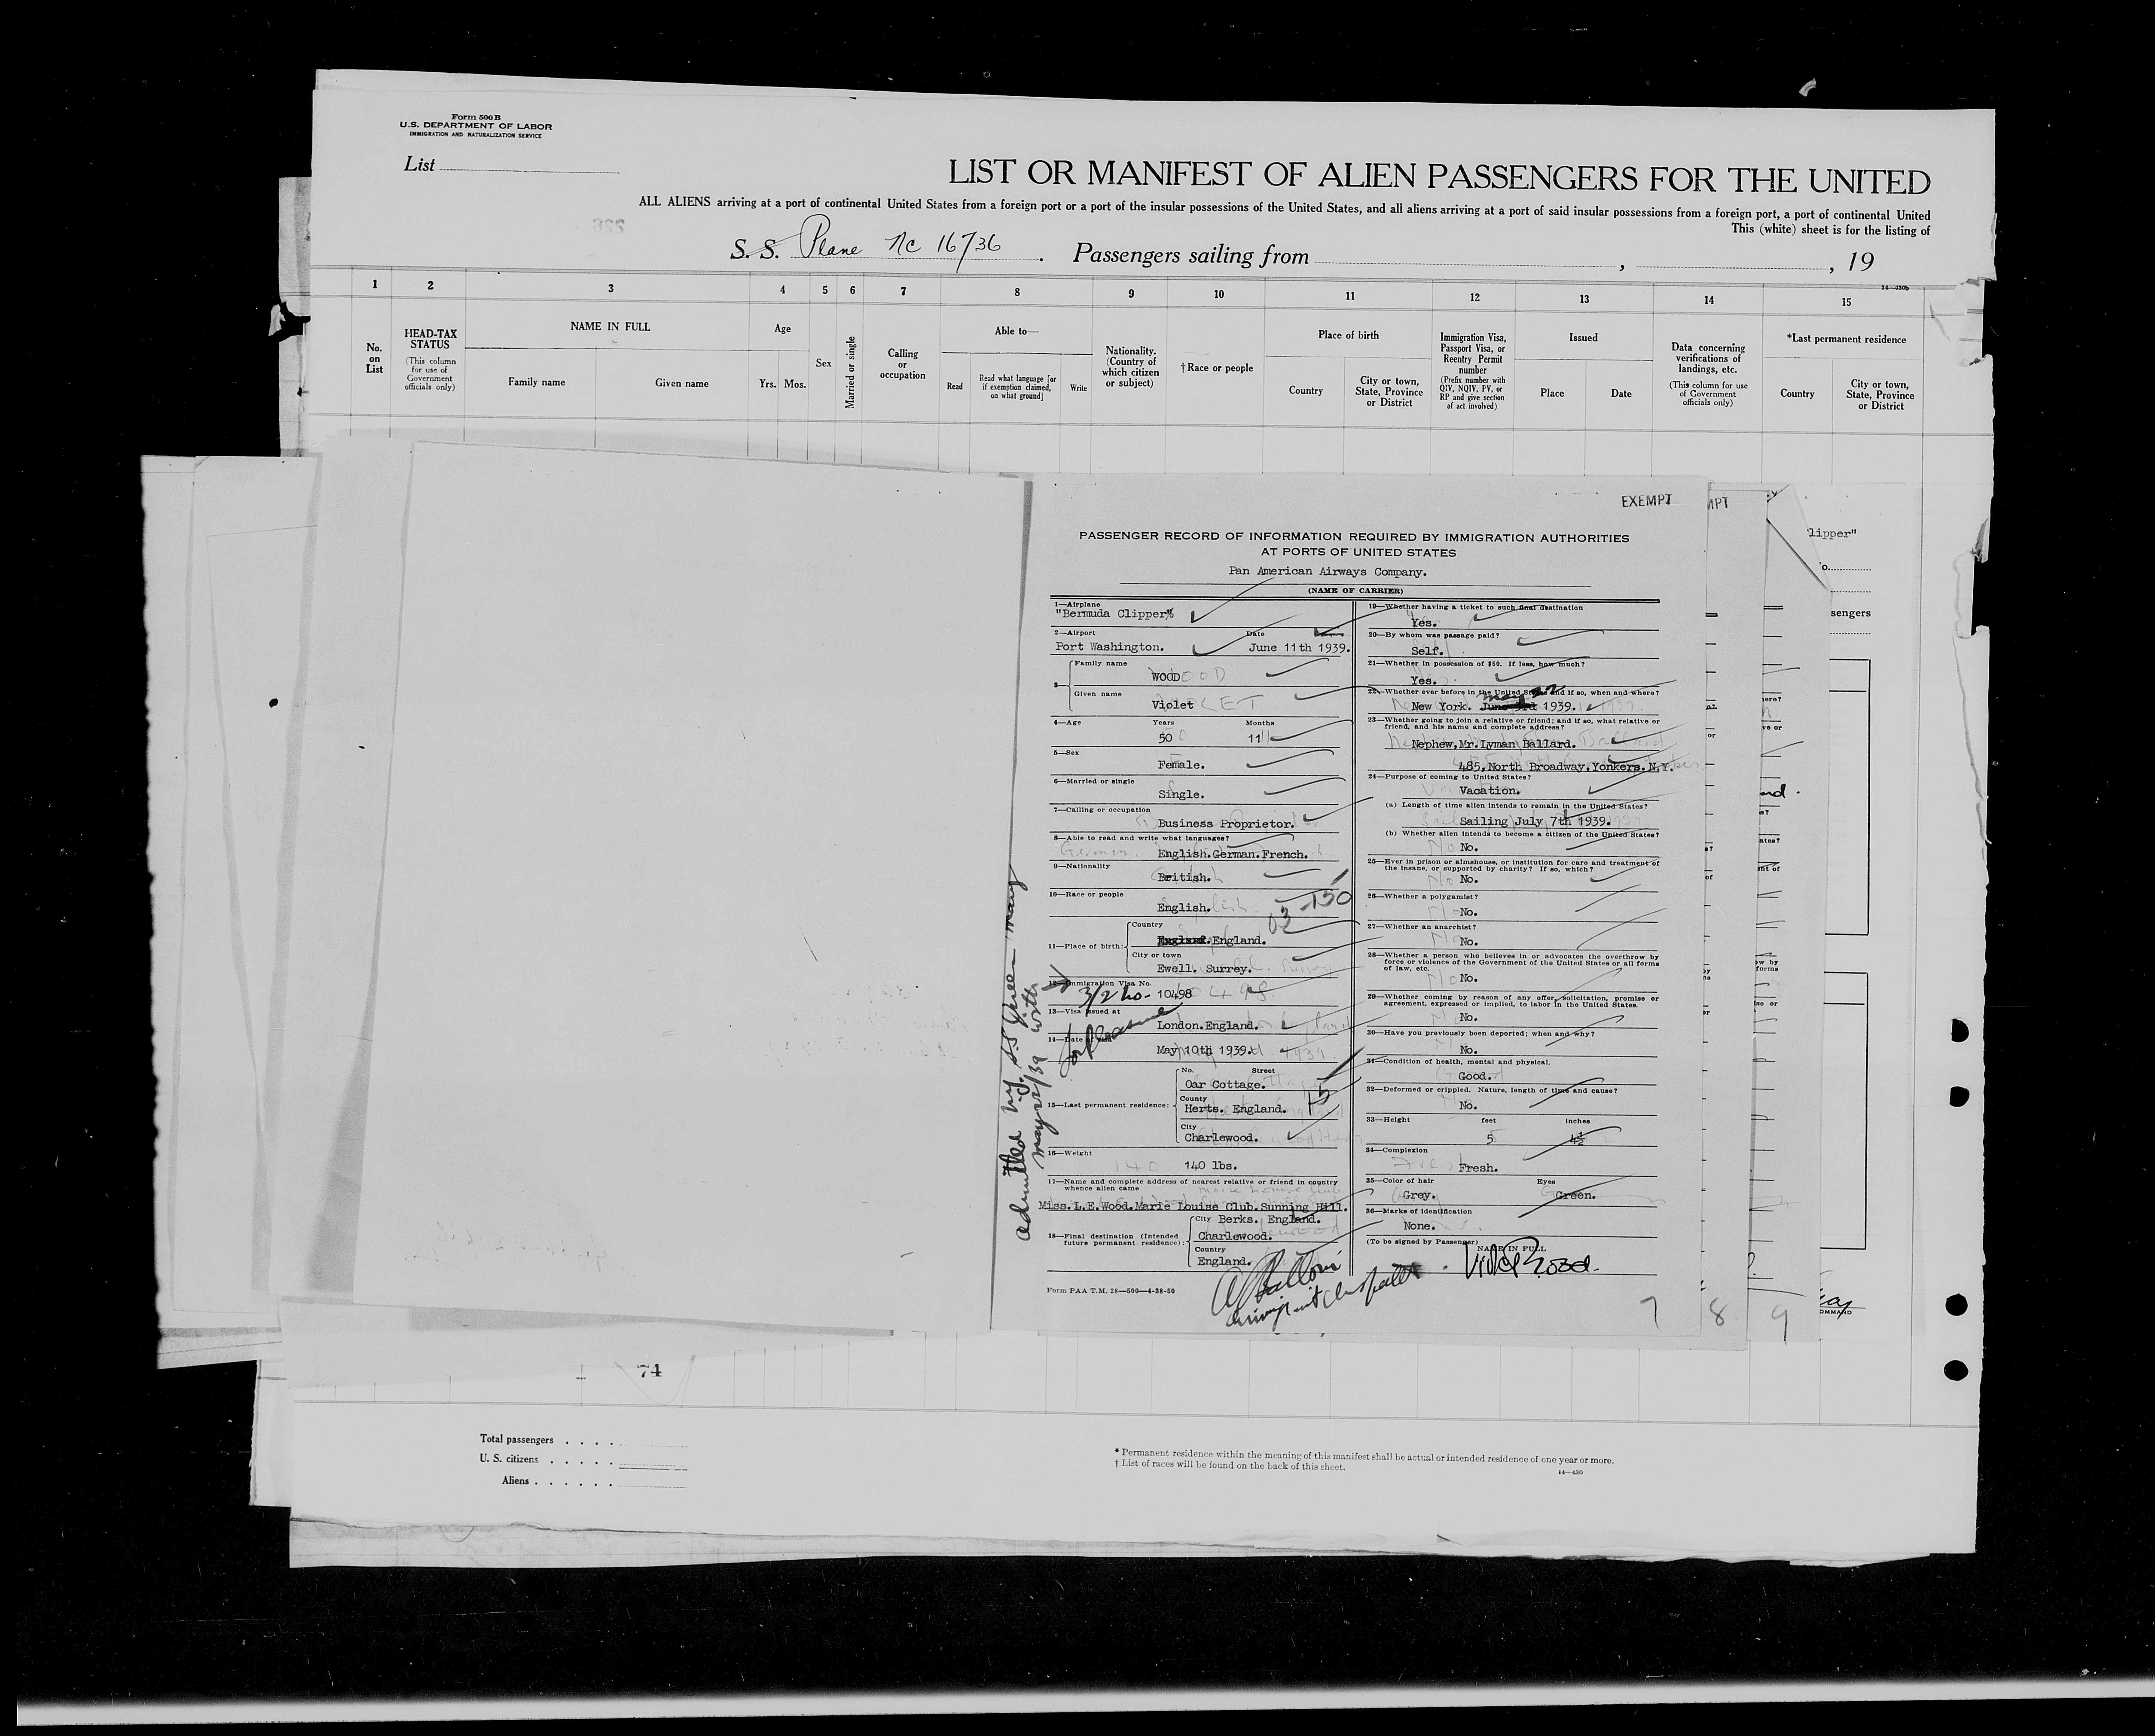 Form 500 B
U.S. DEPARTMENT OF LABOR
IMMIGRATION AND NATURALIZATION SERVICE
List
LIST OR MANIFEST OF ALIEN PASSENGERS FOR THE UNITED
ALL ALIENS arriving at a port of continental United States from a foreign port or a port of the insular possessions of the United States, and all aliens arriving at a port of said insular possessions from a foreign port, a port of continental United
This (white) sheet is for the listing of
S. S. Plane NC 16736 . Passengers sailing from , , 19
14—430b
1 2 3 4 5 6 7 8 9 10 11 12 13 14 15
No. on List
HEAD-TAX STATUS
(This column for use of Government officials only)
NAME IN FULL
Family name Given name
Age
Yrs. Mos.
Sex
Married or single
Calling or occupation
Able to—
Read
Read what language [or if exemption claimed, on what ground]
Write
Nationality. (Country of which citizen or subject)
† Race or people
Place of birth
Country
City or town, State, Province or District
Immigration Visa, Passport Visa, or Reentry Permit number
(Prefix number with QIV, NQIV, PV, or RP and give section of act involved)
Issued
Place Date
Data concerning verifications of landings, etc.
(This column for use of Government officials only)
*Last permanent residence
Country
City or town, State, Province or District
EXEMPT
PASSENGER RECORD OF INFORMATION REQUIRED BY IMMIGRATION AUTHORITIES
AT PORTS OF UNITED STATES
Pan American Airways Company.
(NAME OF CARRIER)
1—Airplane
"Bermuda Clipper%
2—Airport Date
Port Washington. June 11th 1939.
3—
Family name
WOOD
Given name
Violet
4—Age Years Months
50 11
5—Sex
Female.
6—Married or single
Single.
7—Calling or occupation
Business Proprietor.
8—Able to read and write what languages?
English.German.French.
9—Nationality
British.
10—Race or people
English. 150
03
11—Place of birth:
Country
England.England.
City or town
Ewell. Surrey.
12—Immigration Visa No.
3/2 no- 10498
13—Visa issued at
London.England.
for pleasure
14—Date of visa
May 10th 1939.
15—Last permanent residence:
No. Street
Oar Cottage.
County
Herts. England. 15
City
Charlewood.
16—Weight
140 lbs.
17—Name and complete address of nearest relative or friend in country whence alien came
Miss.L.E.Wood.Marie Louise Club.Sunning Hill.
18—Final destination (Intended future permanent residence):
City Berks. England.
Charlewood.
Country
England.
Form PAA T.M. 28—500—4-38-50
19—Whether having a ticket to such final destination
Yes.
20—By whom was passage paid?
Self.
21—Whether in possession of $50. If less, how much?
Yes.
22—Whether ever before in the United States and if so, when and where?
may 22
New York. June 3rd 1939.
23—Whether going to join a relative or friend; and if so, what relative or friend, and his name and complete address?
Nephew,Mr.Lyman Ballard.
485,North Broadway,Yonkers.N.Y.
24—Purpose of coming to United States?
Vacation.
(a) Length of time alien intends to remain in the United States?
Sailing July 7th 1939.
(b) Whether alien intends to become a citizen of the United States?
No.
25—Ever in prison or almshouse, or institution for care and treatment of the insane, or supported by charity? If so, which?
No.
26—Whether a polygamist?
No.
27—Whether an anarchist?
No.
28—Whether a person who believes in or advocates the overthrow by force or violence of the Government of the United States or all forms of law, etc.
No.
29—Whether coming by reason of any offer, solicitation, promise or agreement, expressed or implied, to labor in the United States.
No.
30—Have you previously been deported; when and why?
No.
31—Condition of health, mental and physical.
Good.
32—Deformed or crippled. Nature, length of time and cause?
No.
33—Height feet inches
5 4½
34—Complexion
Fresh.
35—Color of hair Eyes
Grey. Green.
36—Marks of identification
None.
(To be signed by Passenger)
NAME IN FULL
Violet Wood.
immigrant inspector
admitted N.Y. S.S. Queen mary
may 22/39
7 8 9
MPT
Clipper"
sengers
OMMAND
74
Total passengers
U. S. citizens
Aliens
* Permanent residence within the meaning of this manifest shall be actual or intended residence of one year or more.
† List of races will be found on the back of this sheet.
14—430